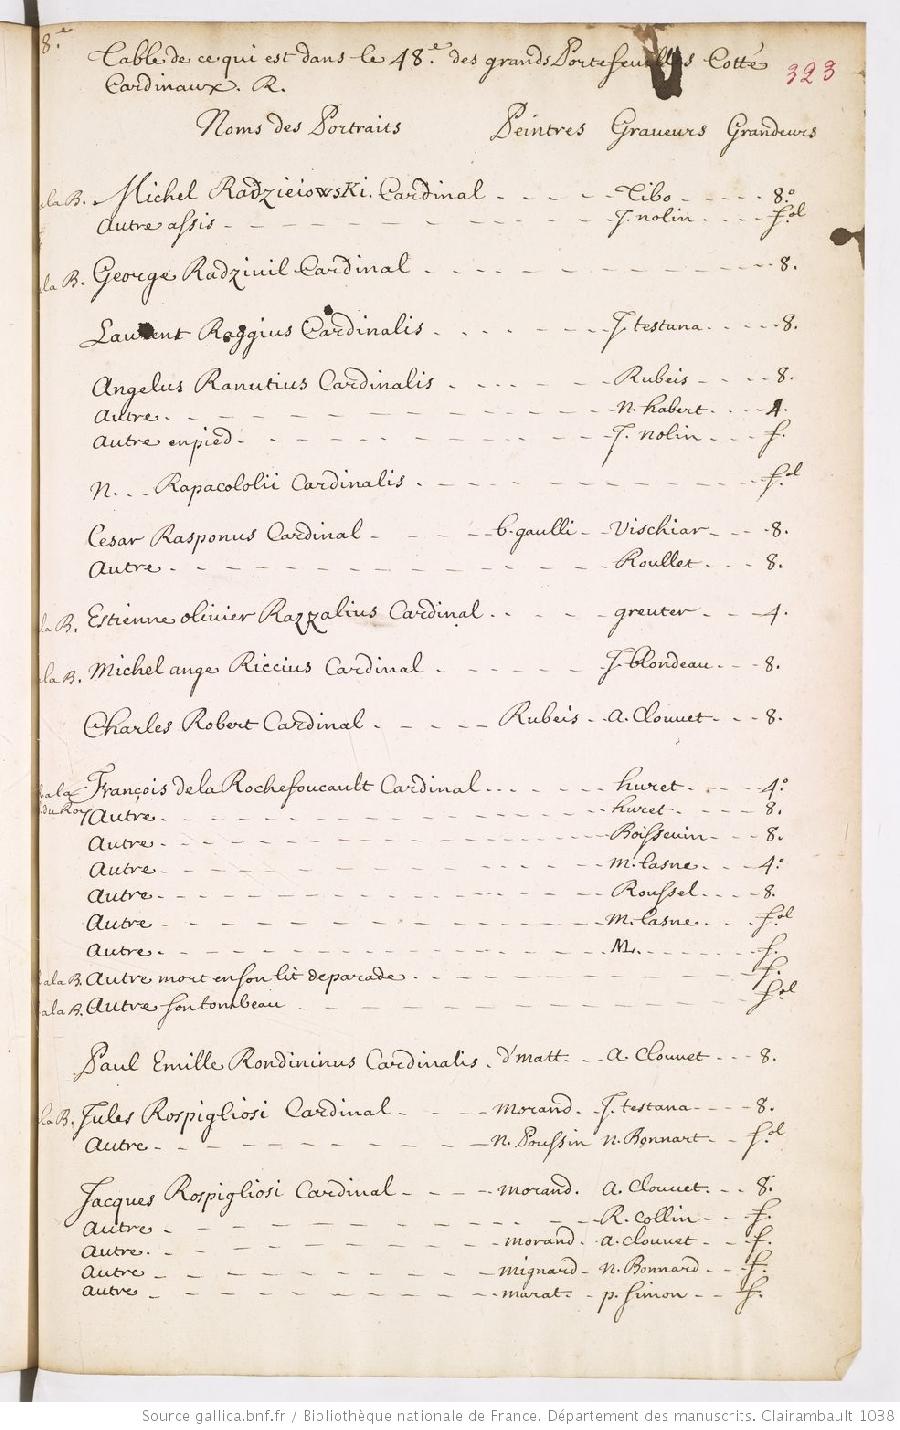 8.e
Table de ce qui est dans le 48.e des grands Portefeuilles Cotté
323
Cardinaux. R.
Noms des Portraits Peintres Graveurs Grandeurs
ala B. Michel Radzieiowski. Cardinal - - - - Tibo - - - - 8.o
Autre assis - - - - J. nolin - - - fol
ala B. George Radzivil Cardinal - - - - 8.
Laurent Raggius Cardinalis - - - - J. testana - - - 8.
Angelus Ranutius Cardinalis - - - - Rubeis - - - 8.
Autre. - - - - n. habert - - - 4.
Autre en pied - - - - J. nolin - - - f.
N. . . Rapacololii Cardinalis - - - - fol
Cesar Rasponus Cardinal - - - - b. gaulli - Vischiar - - - 8.
Autre - - - - Roullet - - - 8.
ala B. Estienne olivier Razzalius Cardinal - - - - greuter - - - 4.
ala B. Michel ange Riccius Cardinal - - - - J. blondeau - - - 8.
Charles Robert Cardinal - - - - Rubeis - - A. Clouuet - - - 8.
ala François de la Rochefoucault Cardinal - - - - huret - - - 4.o
du Roy Autre - - - - huret - - - 8.
Autre - - - - Boisseuin - - - 8.
Autre - - - - M. Lasne - - - 4.o
Autre - - - - Roussel - - - 8.
Autre - - - - M. Lasne - - - fol
Autre - - - - M. - - - f.
ala B. Autre mort en son lit de parade - - - - f.
ala B. Autre son tombeau - - - - fol
Paul Emille Rondininus Cardinalis - d'matt. - A. Clouuet - - - 8.
ala B. Jules Rospigliosi Cardinal - - - - morand. - J. testana - - - 8.
Autre - - - - N. Poussin n. Bonnart - - fol
Jacques Rospigliosi Cardinal - - - - morand. A. Clouuet. - - 8.
Autre - - - - R. Collin - - f.
Autre. - - - - morand. - a. clouuet - - f.
Autre - - - - mignard - n. Bonnard - - f.
Autre - - - - marat. - p. simon - - f.
Source gallica.bnf.fr / Bibliothèque nationale de France. Département des manuscrits. Clairambault 1038